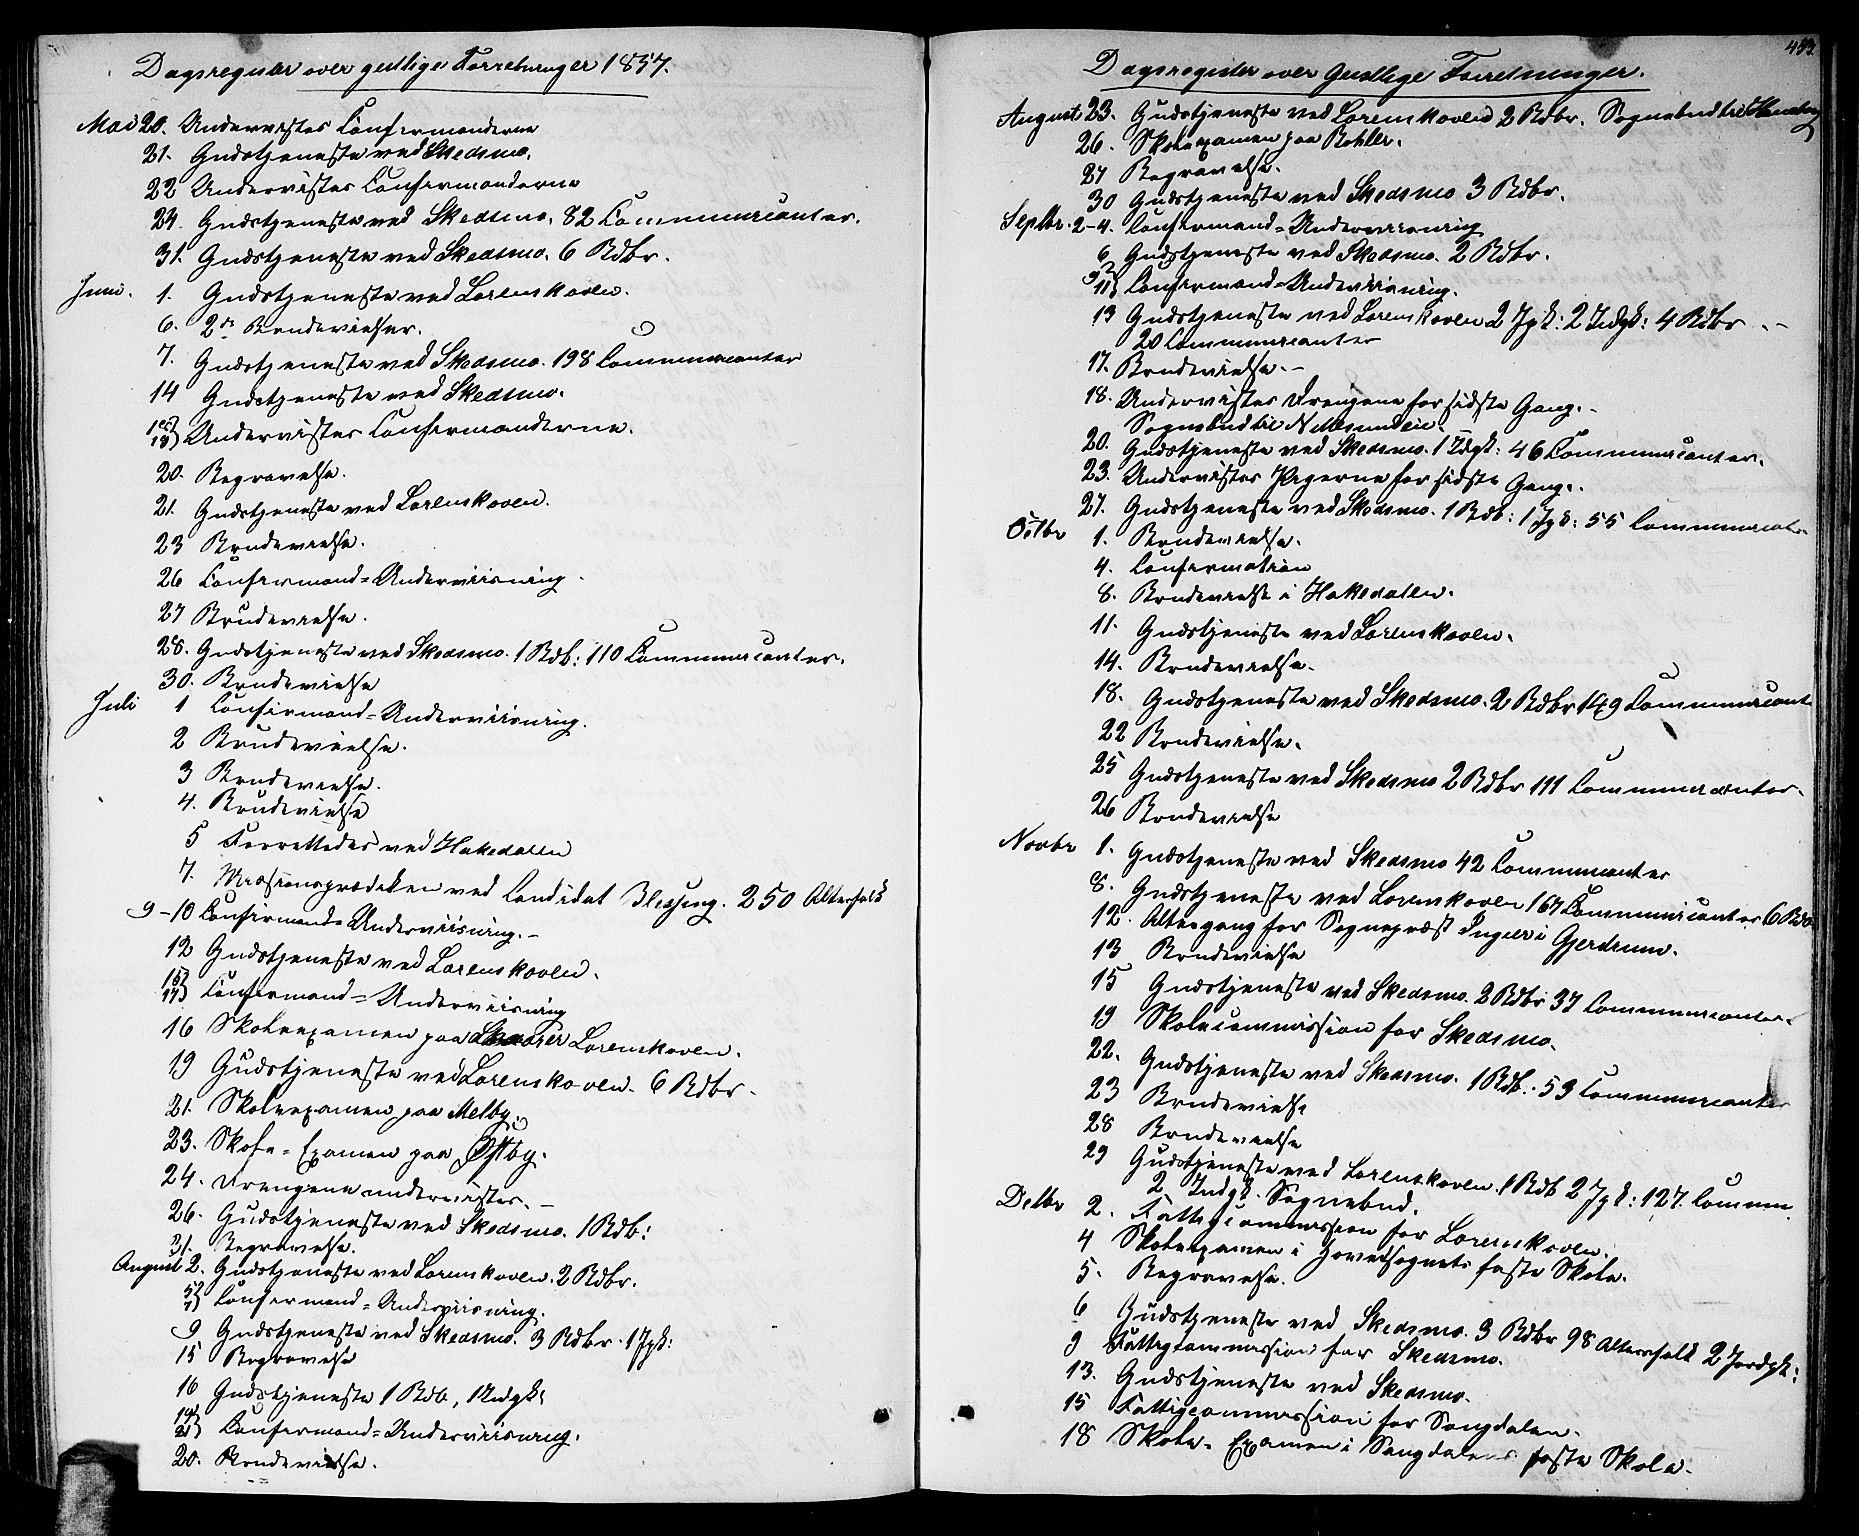 Dagsregister over geistlige Forretninger 1857.
Mai 20. Undervistes Confirmanderne
21. Gudstjeneste ved Skedsmo.
22 Undervistes Confirmanderne
24. Gudstjeneste ved Skedsmo. 82 Communicanter.
31. Gudstjeneste ved Skedsmo. 6 Rdbr.
Juni. 1. Gudstjeneste ved Lorenskoven.
6. 2de Brudevielser.
7. Gudstjeneste ved Skedsmo. 198 Communicanter
14 Gudstjeneste ved Skedsmo.
Undervistes Confirmanderne.
20. Begravelse.
21. Gudstjeneste ved Lorenskoven.
23 Brudevielse.
26 Confirmand=Underviisning.
27 Brudevielse.
28. Gudstjeneste ved Skedsmo. 1 Rdb: 110 Communicanter.
30. Brudevielse
Juli 1 Confirmand=Underviisning.
2 Brudevielse.
3 Brudevielse.
4. Brudevielse
5 Forrettedes ved Hakedalen
7. Missionsprædiken ved Candidat Blessing. 250 Altersfolk
9-10 Confirmand=Underviisning.-
12 Gudstjeneste ved Lorenskoven.
15 17 } Confirmand=Underviisning
16 Skoleexamen paa Skaarer Lorenskoven.
19 Gudstjeneste ved Lorenskoven. 6 Rdbr.
21. Skoleexamen paa Melby.
23. Skole=Examen paa Østby.
24. Drengene undervistes.-
26. Gudstjeneste ved Skedsmo. 1 Rdb:
31. Begravelse.
August 2. Gudstjeneste ved Lorenskoven. 2 Rdbr.
5 7 } Confirmand=Underviisning.
9 Gudstjeneste ved Skedsmo. 3 Rdbr. 1 Jgk:
15 Begravelse
16 Gudstjeneste 1 Rdb, 1 Indgk:
19 21 } Confirmand=Underviisning.
20. Brudevielse.
433.
Dagsregister over Geistlige Forretninger.
August 23. Gudstjeneste ved Lorenskoven 2 Rdbr. Sognebud til
26. Skoleexamen paa Bøhler.
27 Begravelse.
30 Gudstjeneste ved Skedsmo 3 Rdbr.
Septbr. 2-4. Confirmand=Underviisning
6 Gudstjeneste ved Skedsmo. 2 Rdbr.
9 11 } Confirmand=Underviisning.
13 Gudstjeneste ved Lorenskoven 2 Jgk: 2 Indgk: 4 Rdbr.-
20 Communicanter
17. Brudevielse.-
18. Undervistes Drengene for sidste Gang.-
Sognebud til
20. Gudstjeneste ved Skedsmo. 1 Idgk: 46 Communicanter.
23. Undervistes Pigerne for sidste Gang.
27. Gudstjeneste ved Skedsmo. 1 Rdb: 1 Jgk: 55 Communicanter.
Octbr 1. Brudevielse.
4. Confirmation
8. Brudevielse i Hakedalen.
11. Gudstjeneste ved Lorenskoven.
14. Brudevielse.
18. Gudstjeneste ved Skedsmo. 2 Rdbr 149 Communicant
22 Brudevielse.
25 Gudstjeneste ved Skedsmo 2 Rdbr 111 Communicanter.
26 Brudevielse
Novbr 1. Gudstjeneste ved Skedsmo 42 Communicanter
8. Gudstjeneste ved Lorenskoven 167 Communicanter 6 Rdb
12. Altergang for Sognepræst Inger i Gjerdrum.
13 Brudevielse
15 Gudstjeneste ved Skedsmo. 2 Rdbr 37 Communicanter.
19 Skolecommission for Skedsmo.
22. Gudstjeneste ved Skedsmo. 1 Rdb. 53 Communicanter
23 Brudevielse
28 Brudevielse
29 Gudstjeneste ved Lorenskoven. 1 Rdb 2 Jgk: 127. Commun
2 Indgk. Sognebud.
Decbr 2. Fattigcommission for Lorenskoven.
4 Skoleexamen i Hovedsognets faste Skole.
5. Begravelse.
6 Gudstjeneste ved Skedsmo. 3 Rdbr 98 Altersfolk 2 Jordgk:
9 Fattigcommission for Skedsmo.
13. Gudstjeneste ved Skedsmo.
15 Fattigcommission for Sangdalen.
18 Skole=Examen i Sangdalens faste Skole.